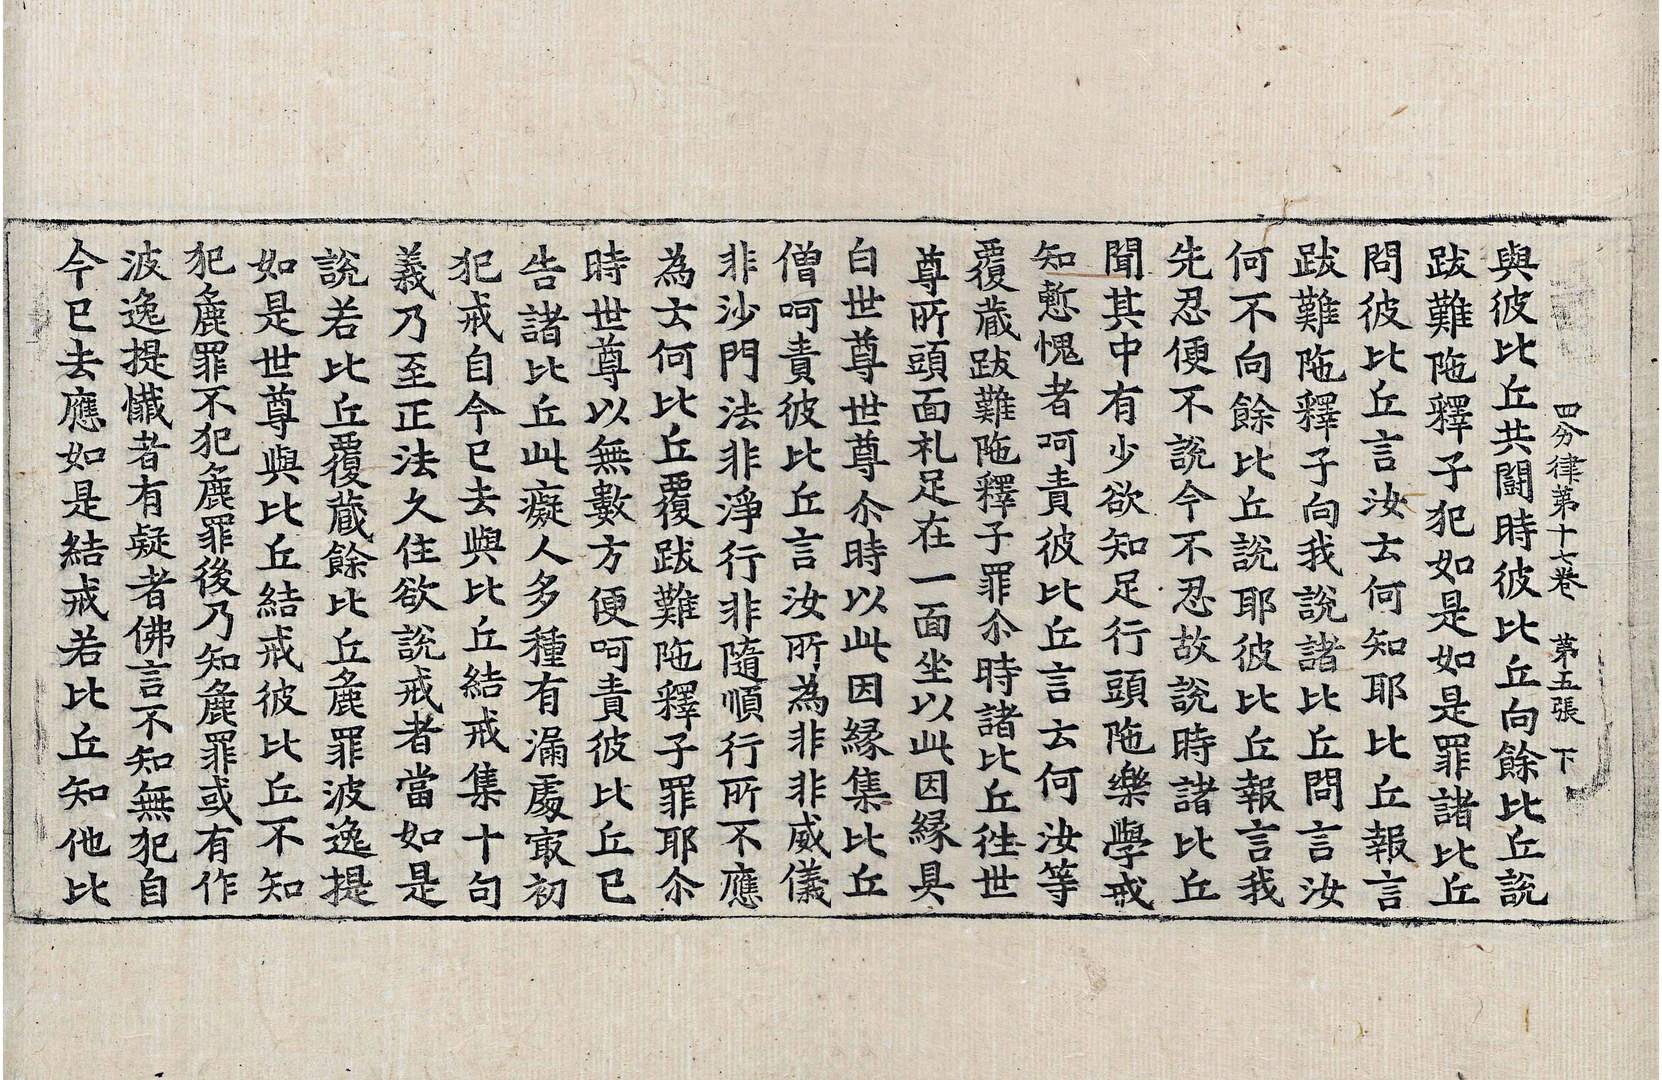 四分律第十七卷 第五張 下
與彼比丘共鬪時彼比丘向餘比丘說
跋難陁釋子犯如是如是罪諸比丘
問彼比丘言汝云何知耶比丘報言
跋難陁釋子向我說諸比丘問言汝
何不向餘比丘說耶彼比丘報言我
先忍便不說今不忍故說時諸比丘
聞其中有少欲知足行頭陁樂學戒
知慙愧者呵責彼比丘言云何汝等
覆藏跋難陁釋子罪尒時諸比丘徃世
尊所頭面礼足在一面坐以此因緣具
白世尊世尊尒時以此因緣集比丘
僧呵責彼比丘言汝所為非非威儀
非沙門法非淨行非隨順行所不應
為云何比丘覆跋難陁釋子罪耶尒
時世尊以無數方便呵責彼比丘已
告諸比丘此癡人多種有漏處冣初
犯戒自今已去與比丘結戒集十句
義乃至正法久住欲說戒者當如是
說若比丘覆藏餘比丘麁罪波逸提
如是世尊與比丘結戒彼比丘不知
犯麁罪不犯麁罪後乃知麁罪或有作
波逸提懺者有疑者佛言不知無犯自
今已去應如是結戒若比丘知他比